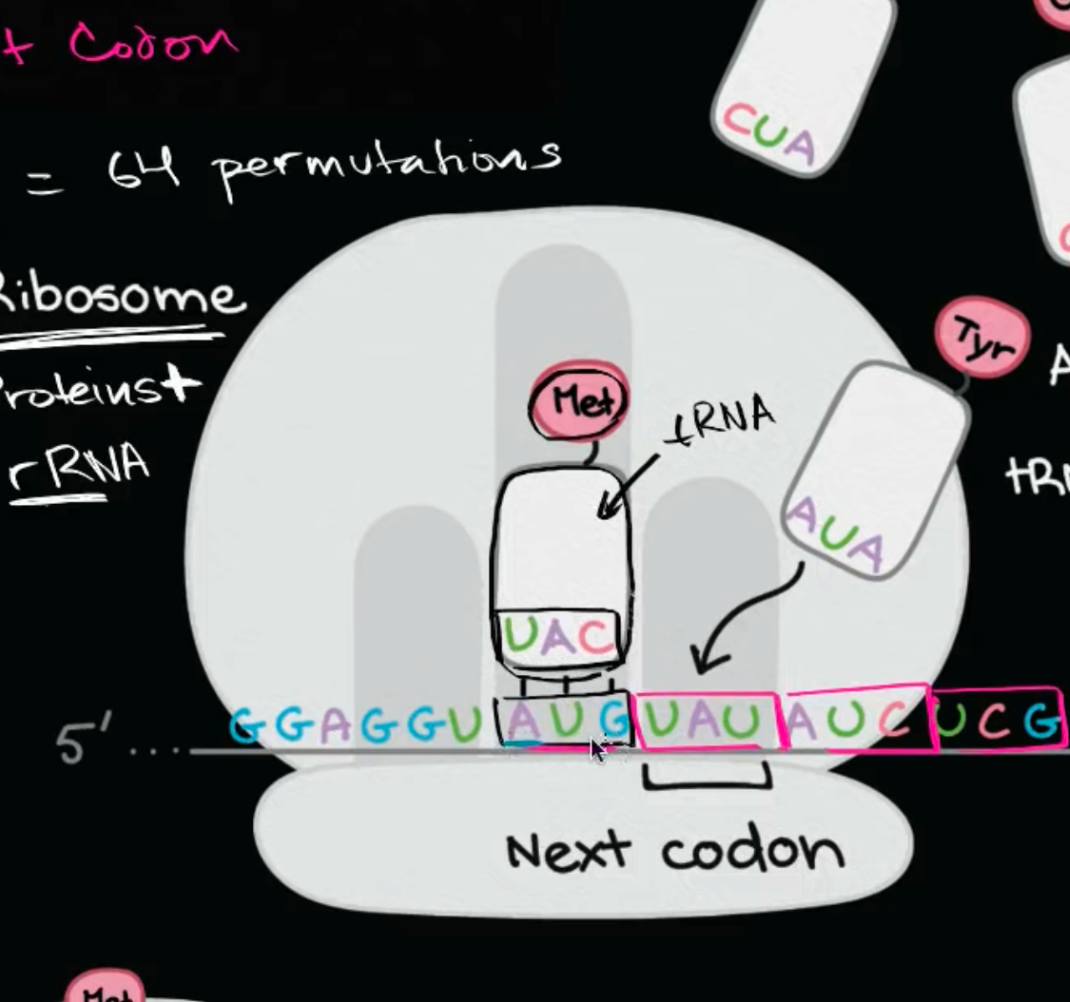 + Codon
CUA
= 64 permutations
Ribosome
Proteins+
rRNA
Met
tRNA
Tyr
AUA
UAC
5' .... GGAGGUAUGUAUAUCUCG
Next codon
Met